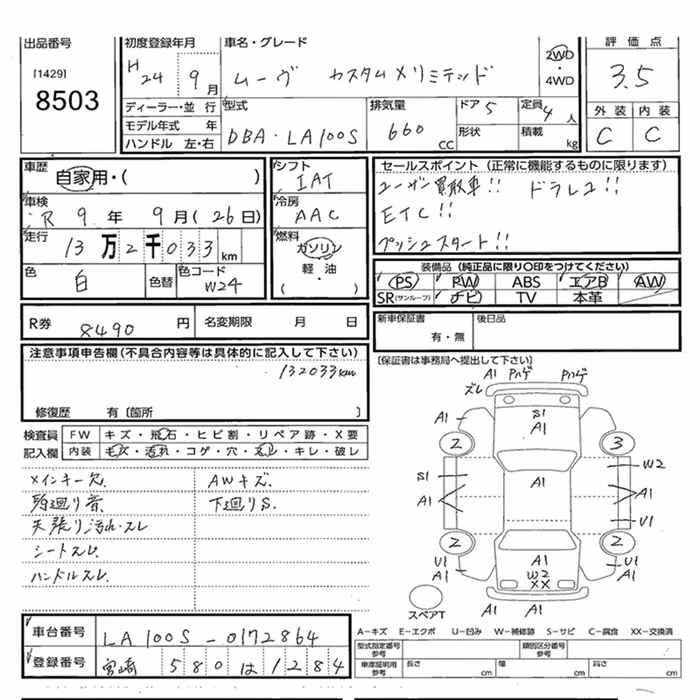 出品番号
[1429]
8503
初度登録年月
H 24 年 9 月
車名・グレード
ムーヴ カスタムXリミテッド
2WD
・4WD
評価点
3.5
外装 内装
C C
ディーラー・並行
モデル年式 年
ハンドル 左・右
型式
DBA・LA100S
排気量
660 CC
ドア 5
形状
定員 4 人
積載 kg
車歴
自家用・( )
車検
R 9 年 9 月 (26日)
走行
13万2千033 km
色 白 色替
色コード W24
シフト
IAT
冷房
AAC
燃料
ガソリン
軽・油
・( )
セールスポイント (正常に機能するものに限ります)
ユーザー買取車!! ドラレコ!!
ETC!!
プッシュスタート!!
装備品 (純正品に限り〇印をつけてください)
PS PW ABS エアB AW
SR(サンルーフ) ナビ TV 本革
R券 8490 円 名変期限 月 日
新車保証書
有・無
後日品
注意事項申告欄(不具合内容等は具体的に記入して下さい)
132033km
修復歴 有〔箇所 〕
〔保証書は事務局へ提出して下さい〕
検査員 FW キズ・飛石・ヒビ割・リペア跡・X要
記入欄 内装 キズ・汚れ・コゲ・穴・スレ・キレ・破レ
メインキー欠 AWキズ
頭廻り音 下廻りS
天張り汚れ・スレ
シートスレ
ハンドルスレ
ズレ A1 Pハゲ Pハゲ
A1 S1 A1
2 3
S1 A1 W2
A1 A1
U1
2 2
U1 A1 A1 W2 XX U1 A1
スペアT
車台番号 LA100S-0172864
登録番号 宮崎 580 は 1284
A-キズ E-エクボ U-凹み W-補修跡 S-サビ C-腐食 XX-交換済
型式指定番号 参考
類別区分番号 参考
車庫証明用 参考
長さ cm 幅 cm 高さ cm